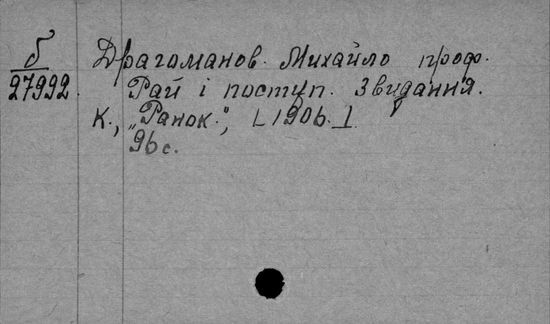 б
27992
Драгоманов. Михайло проф.
Рай і поступ. 3 видання.
К., "Ранок.", [1906.]
96 с.